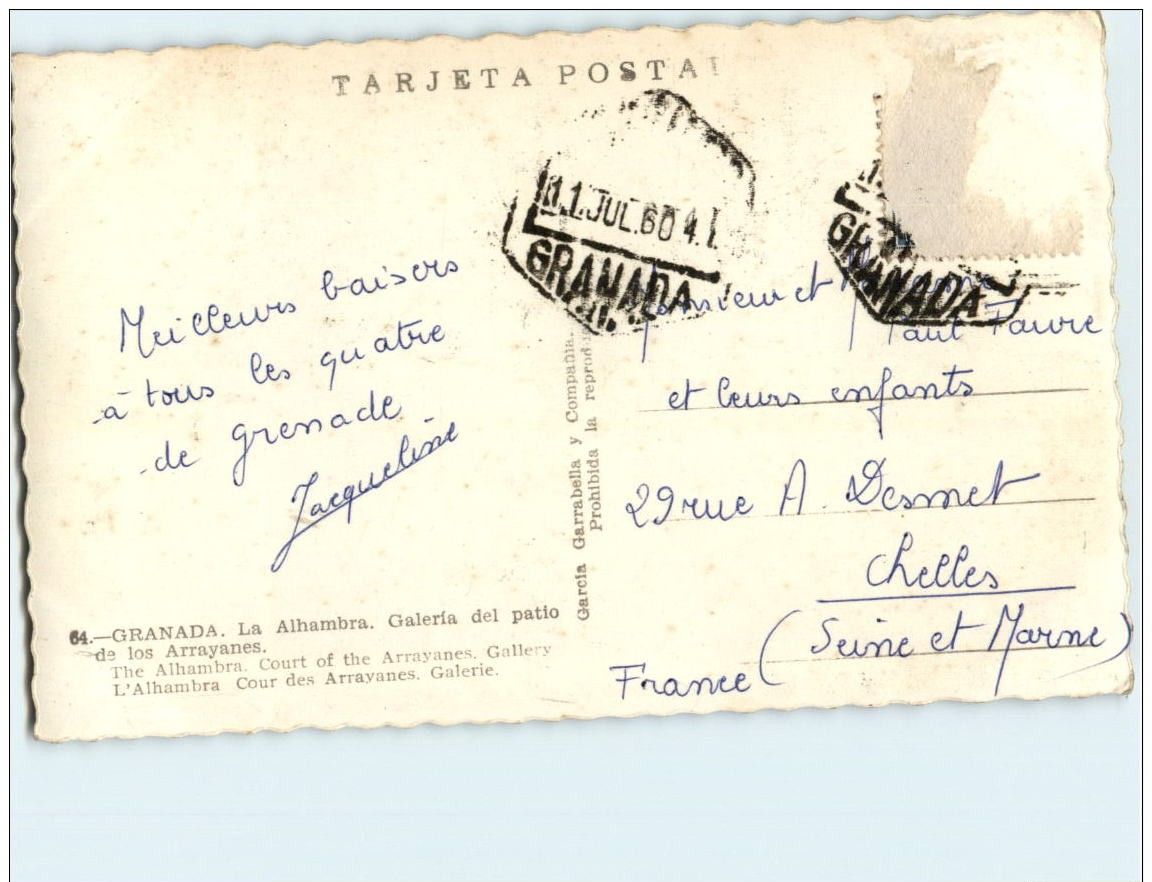 TARJETA POSTAL
11 JUL.60 4.
GRANADA
GRANADA
Meilleurs baisers
à tous les quatre
de grenade
Jacqueline
Monsieur et Madame
Paul Faure
et leurs enfants
29 rue A. Desmet
Chelles
(Seine et Marne)
France
Garcia Garrabella y Compañia.
Prohibida la reprod
64.—GRANADA. La Alhambra. Galería del patio
de los Arrayanes.
The Alhambra. Court of the Arrayanes. Gallery
L'Alhambra Cour des Arrayanes. Galerie.